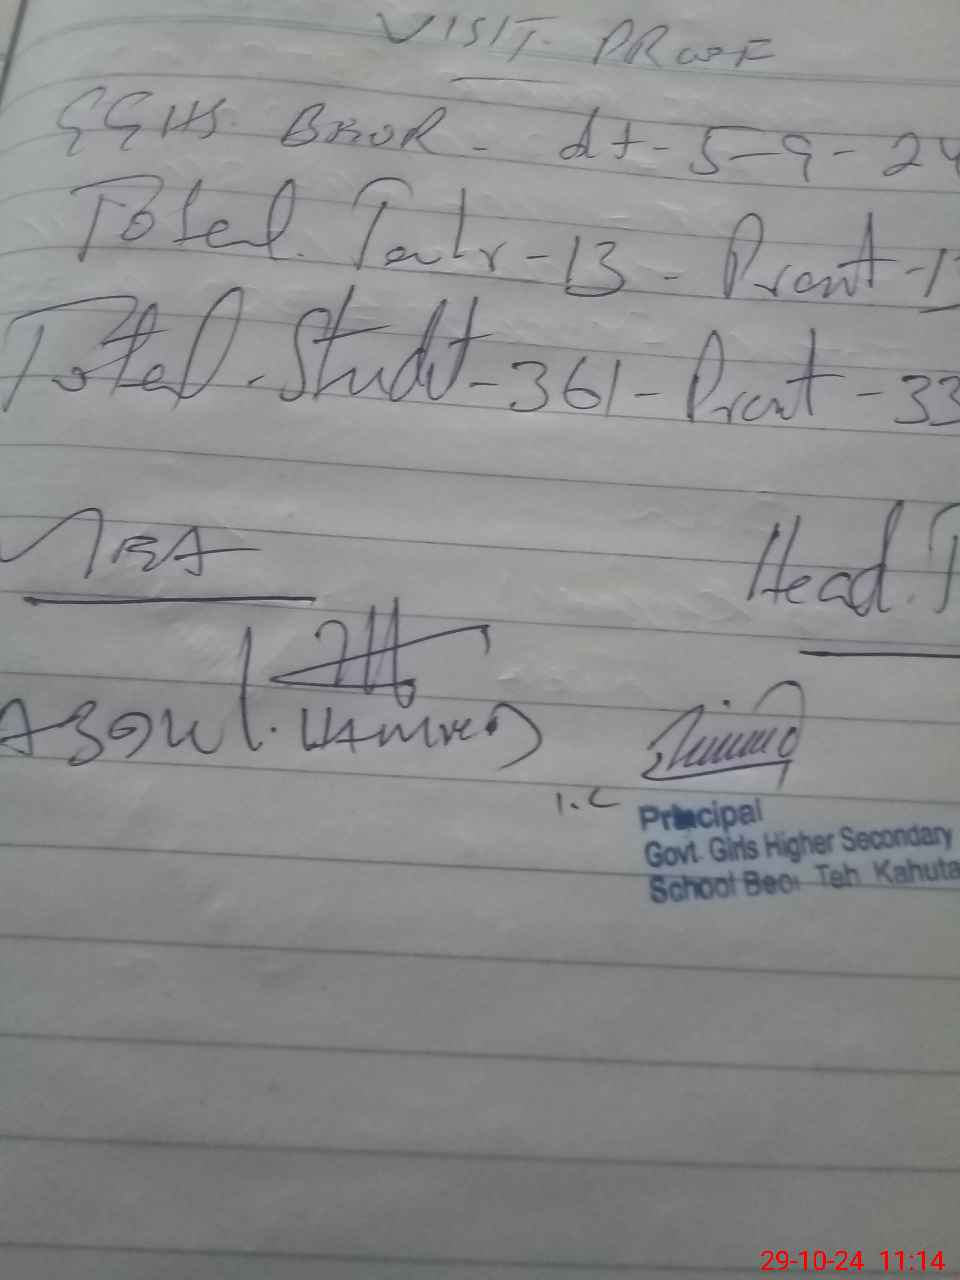 VISIT PROOF
GGHS. BEOR - dt-5-9-24
Total. Teachr-13 - Presnt-1
Total. Studt-361-Presnt-33
MEA
Head. T
Abdul. Hameed
I.C
Principal
Govt. Girls Higher Secondary
School Beor Teh Kahuta
29-10-24 11:14